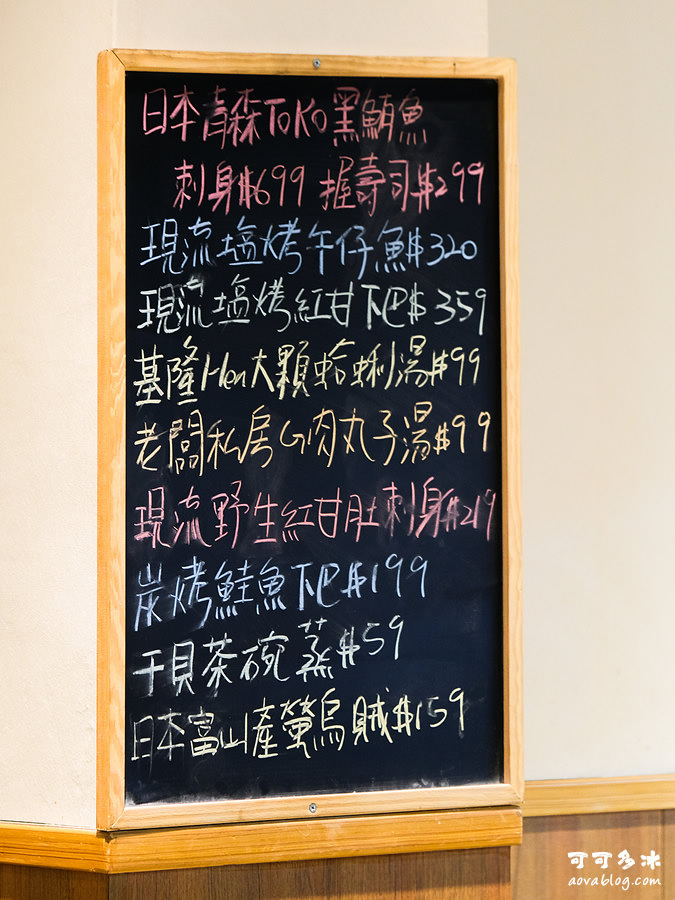 日本青森TOKO黑鮪魚
刺身$699 握壽司$299
現流塩烤午仔魚$320
現流塩烤紅甘下巴$359
基隆Hen大顆蛤蜊湯$99
老闆私房G肉丸子湯$99
現流野生紅甘肚刺身$219
炭烤鮭魚下巴$199
干貝茶碗蒸$59
日本富山產螢烏賊$159
可可多冰
aovablog.com